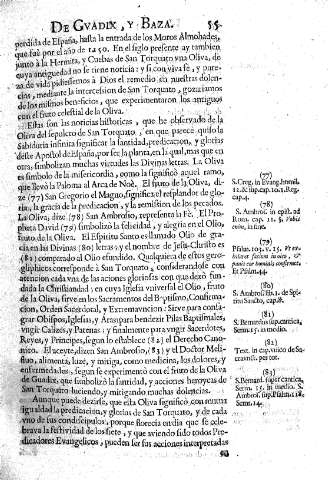 DE GVADIX, Y BAZA. 55
perdida de España, hasta la entrada de los Moros Almohades,
que fue por el año de 1250. En el siglo presente ay tambien
junto à la Hermita, y Cuebas de San Torquato vna Oliva, de
cuya antiguedad no se tiene noticia: y si convive se, y pare-
za de vida pidiessemos à Dios el remedio en nuestras dolen-
cias, mediante la intercession de San Torquato, gozariamos
de los mismos beneficios, que experimentaron los antiguos
con el fruto celestial de la Oliva.
Estas son las noticias historicas, que he observado de la
Oliva del sepulcro de San Torquato, en que parece quiso la
Sabiduria infinita significar la santidad, predicacion, y glorias
deste Apostol de España, por ser la planta, en la qual, mas que en
otra, simbolizan muchas virtudes las Divinas letras. La Oliva
es simbolo de la misericordia, como la significò aquel ramo,
que llevò la Paloma al Arca de Noè. El fruto de la Oliva, di-
ze (77) San Gregorio el Magno, significa el resplandor de las
obras, la gracia de la predicacion, y la remission de los pecados.
La Oliva, dize (78) San Ambrosio, representa la Fè. El Pro-
pheta David (79) simbolizò la felicidad, y alegria en el Olio,
fruto de la Oliva. El Espiritu Santo es llamado Olio de gra-
cia en las Divinas (80) letras y el nombre de Jesu-Christo es
(81) comparado al Olio esfundido. Qualquiera de estos gero-
glyphicos corresponde à San Torquato, considerandole con
atencion cada vna de las acciones gloriosas con que adornò fun-
dada la Christiandad; en cuya Iglesia vniversal el Olio, fruto
de la Oliva, sirve en los Sacramentos del Baptismo, Confirma-
cion, Orden Sacerdotal, y Extremavncion: Sirve para consa-
grar Obispos, Iglesias, y Aras; para bendezir Pilas Baptismales,
Vngir Calizes, y Patenas: y finalmente para vngir Sacerdotes,
Reyes, y Principes, segun lo establece (82) el Derecho Cano-
nico. El azeyte, dizen San Ambrosio, (83) y el Doctor Meli-
fluo, alimenta, luze, y mitiga, como medicina, los dolores, y
enfermedades, segun se experimentò con el fruto de la Oliva
de Guadix, que simbolizò la santidad, y acciones heroycas de
San Torquato luciendo, y mitigando muchas dolencias.
Aunque puede dezirse, que esta Oliva significò con mucha
igualdad la predicacion, y glorias de San Torquato, y de cada
vno de sus condiscipulos, porque florecia en dia que se cele-
brava la festividad de los siete, y que aviendo sido todos Pre-
dicadores Evangelicos, pueden ser sus acciones interpretadas
(77)
S. Greg. in Evang. homil.
cap. 4.
(78)
S. Ambros. in epist. ad
Rom. cap. 11.
(79)
Psalm. 103. v. 15.
Et Psalm. 44.
(80)
S. Ambros. lib. 1. de Spi-
ritu Sancto, cap. 8.
(81)
S. Bernardus sup. cantica,
Serm. 15. in medio.
(82)
Text. in cap. vnico de Sa-
cra
(83)
S. Bernard. super cantica,
Serm. 15. in medio. S.
Ambros. sup. Psalm. 118.
Serm. 14.